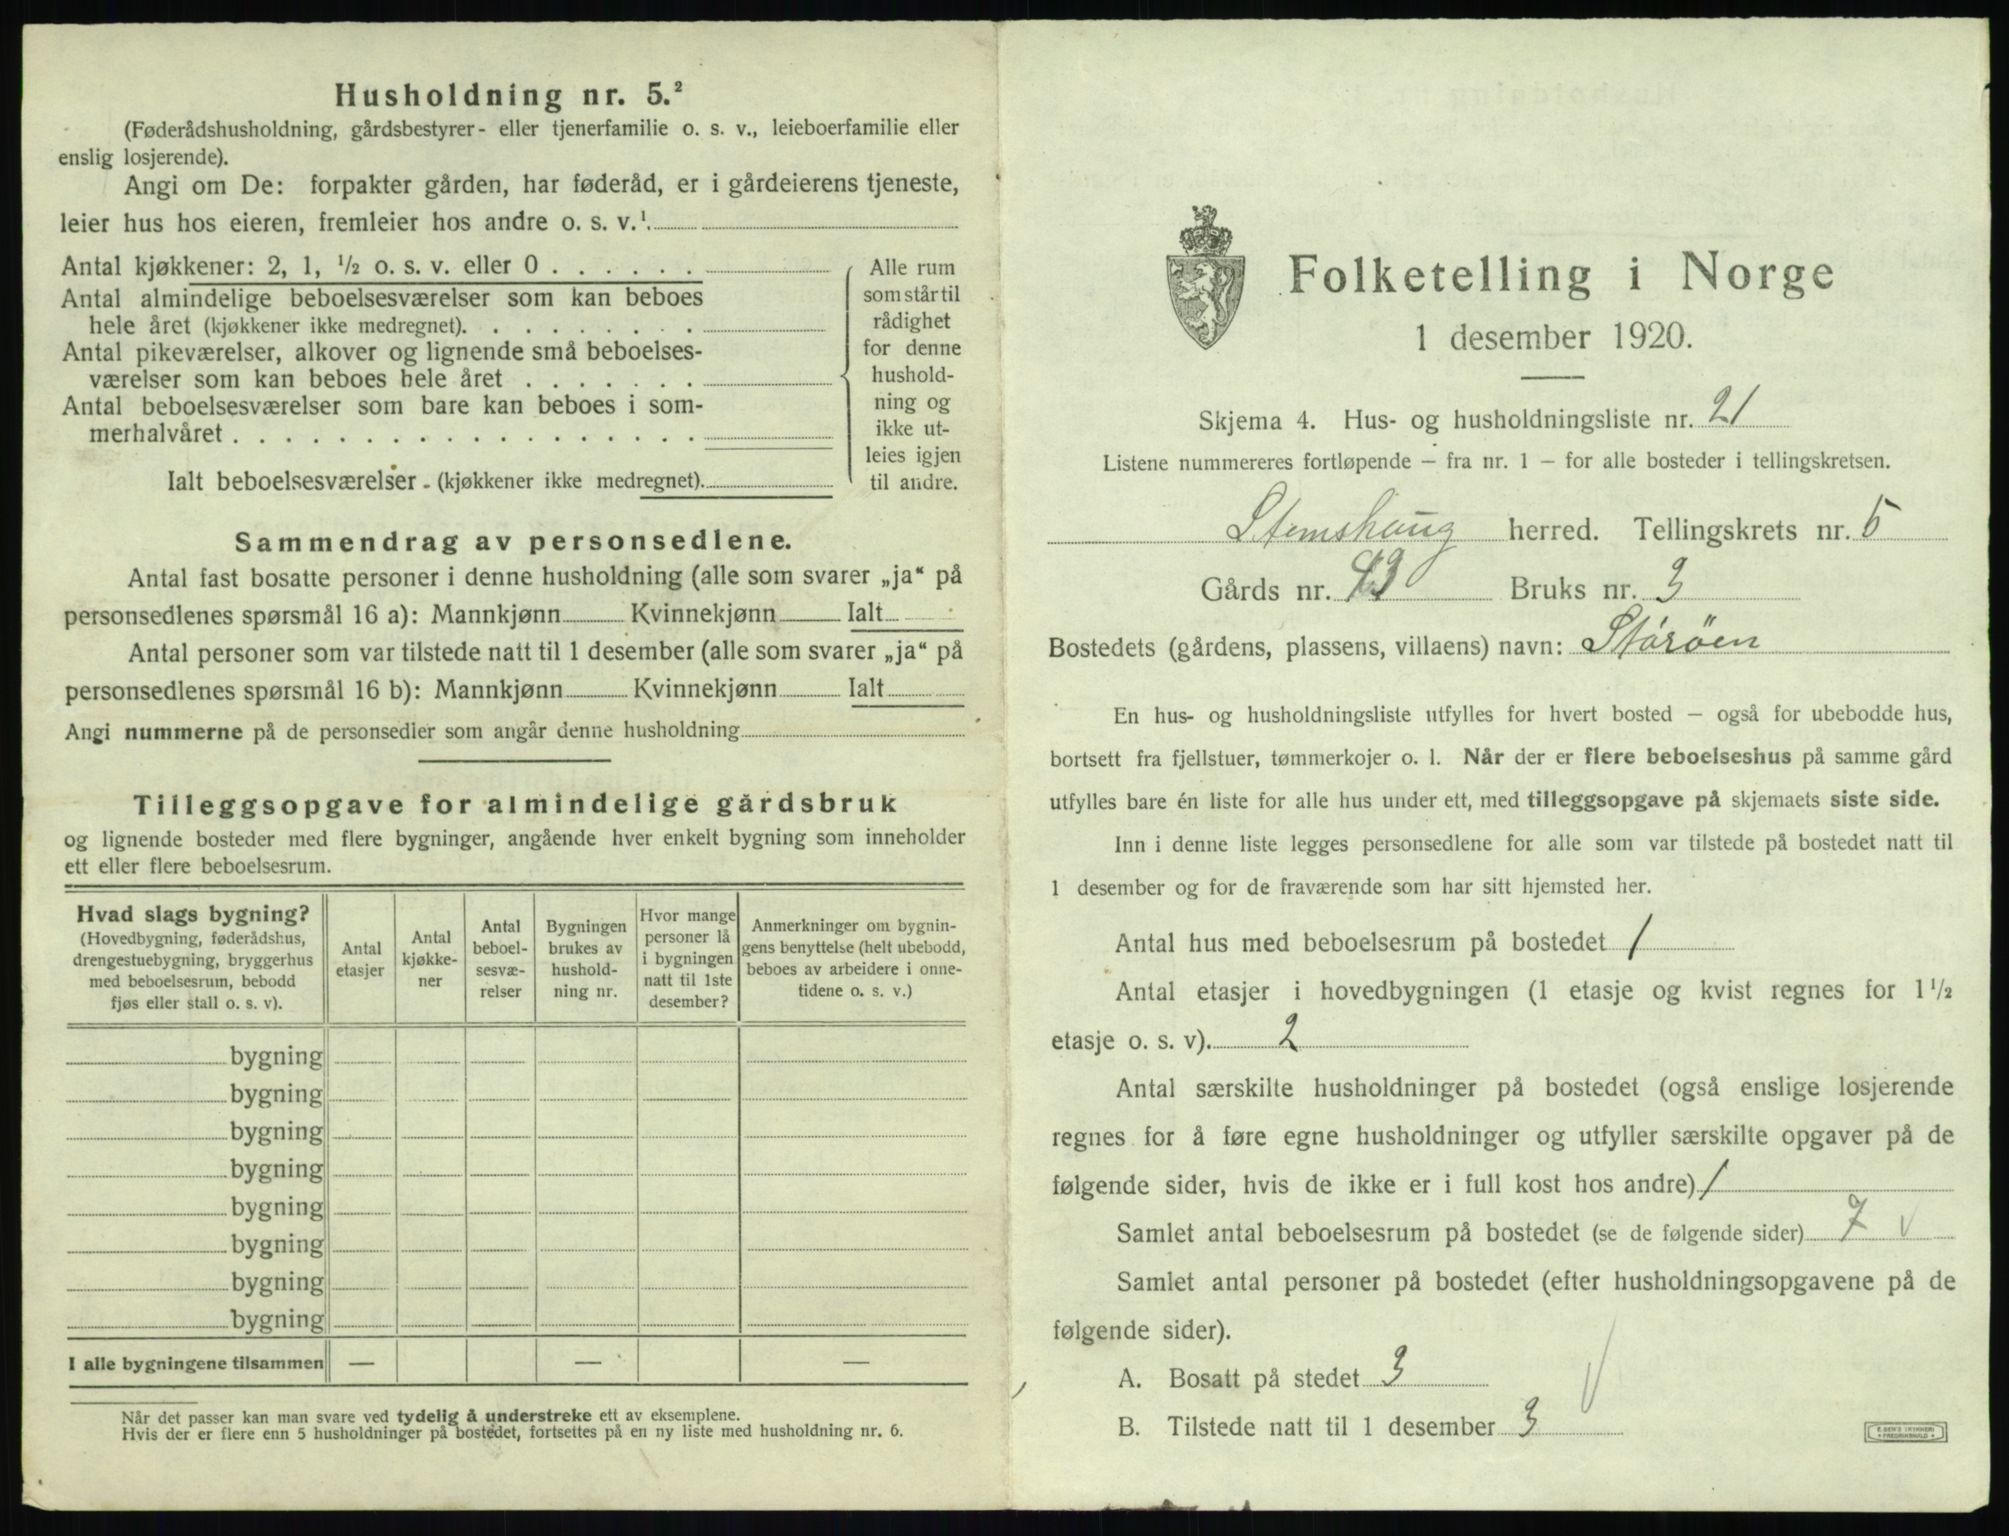 Husholdning nr. 5.²
(Føderådshusholdning, gårdsbestyrer- eller tjenerfamilie o. s. v., leieboerfamilie eller
enslig losjerende).
Angi om De: forpakter gården, har føderåd, er i gårdeierens tjeneste,
leier hus hos eieren, fremleier hos andre o. s. v.¹
Antal kjøkkener: 2, 1, ½ o. s. v. eller 0
Antal almindelige beboelsesværelser som kan beboes
hele året (kjøkkener ikke medregnet).
Antal pikeværelser, alkover og lignende små beboelses-
værelser som kan beboes hele året
Antal beboelsesværelser som bare kan beboes i som-
merhalvåret
Ialt beboelsesværelser - (kjøkkener ikke medregnet).
Alle rum
som står til
rådighet
for denne
hushold-
ning og
ikke ut-
leies igjen
til andre.
Sammendrag av personsedlene.
Antal fast bosatte personer i denne husholdning (alle som svarer „ja“ på
personsedlenes spørsmål 16 a): Mannkjønn Kvinnekjønn Ialt
Antal personer som var tilstede natt til 1 desember (alle som svarer „ja“ på
personsedlenes spørsmål 16 b): Mannkjønn Kvinnekjønn Ialt
Angi nummerne på de personsedler som angår denne husholdning
Tilleggsopgave for almindelige gårdsbruk
og lignende bosteder med flere bygninger, angående hver enkelt bygning som inneholder
ett eller flere beboelsesrum.
Hvad slags bygning?
(Hovedbygning, føderådshus,
drengestuebygning, bryggerhus
med beboelsesrum, bebodd
fjøs eller stall o. s. v).
Antal
etasjer
Antal
kjøkke-
ner
Antal
beboel-
sesvæ-
relser
Bygningen
brukes av
hushold-
ning nr.
Hvor mange
personer lå
i bygningen
natt til 1ste
desember?
Anmerkninger om bygnin-
gens benyttelse (helt ubebodd,
beboes av arbeidere i onne-
tidene o. s. v.)
bygning
bygning
bygning
bygning
bygning
bygning
bygning
bygning
I alle bygningene tilsammen — — —
Når det passer kan man svare ved tydelig å understreke ett av eksemplene.
Hvis der er flere enn 5 husholdninger på bostedet, fortsettes på en ny liste med husholdning nr. 6.
Folketelling i Norge
1 desember 1920.
Skjema 4. Hus- og husholdningsliste nr. 21
Listene nummereres fortløpende – fra nr. 1 – for alle bosteder i tellingskretsen.
Stemshaug herred. Tellingskrets nr. 5
Gårds nr. 43 Bruks nr. 3
Bostedets (gårdens, plassens, villaens) navn: Størøen
En hus- og husholdningsliste utfylles for hvert bosted – også for ubebodde hus,
bortsett fra fjellstuer, tømmerkojer o. l. Når der er flere beboelseshus på samme gård
utfylles bare én liste for alle hus under ett, med tilleggsopgave på skjemaets siste side.
Inn i denne liste legges personsedlene for alle som var tilstede på bostedet natt til
1 desember og for de fraværende som har sitt hjemsted her.
Antal hus med beboelsesrum på bostedet 1
Antal etasjer i hovedbygningen (1 etasje og kvist regnes for 1½
etasje o. s. v). 2
Antal særskilte husholdninger på bostedet (også enslige losjerende
regnes for å føre egne husholdninger og utfyller særskilte opgaver på de
følgende sider, hvis de ikke er i full kost hos andre) 1
Samlet antal beboelsesrum på bostedet (se de følgende sider) 7
Samlet antal personer på bostedet (efter husholdningsopgavene på de
følgende sider).
A. Bosatt på stedet 3
B. Tilstede natt til 1 desember 3